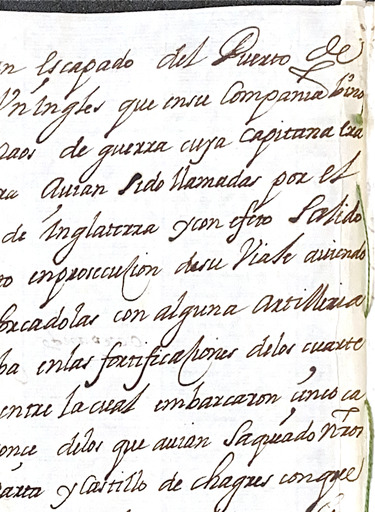 n escapado del Puerto de
Vn Ingles que ensu Compania bino
naos de guerra cuya capitana era
ra auian sido llamadas por el
de Inglaterra y con efeto salido
to enprosecusion desu Viaje auiendo
orcadolas con alguna artilleria
ba enlas fortificasiones delos cuarte
entre la cual embarcaron sinco ca
once delos que auian saqueado
arta y Castillo de chagres conque